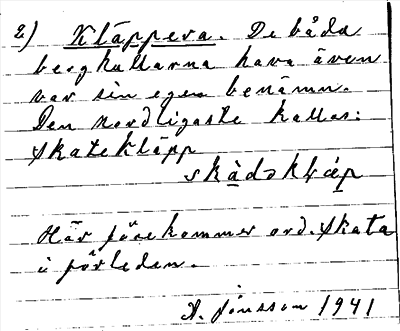 2) Kläppera. De båda
bergkullarna hava även
var sin egen benämn.
Den nordligaste kallas:
Skatekläpp
skàdəkɫáp
Här förekommer ord. Skata
i förleden.
A. Jónsson 1941